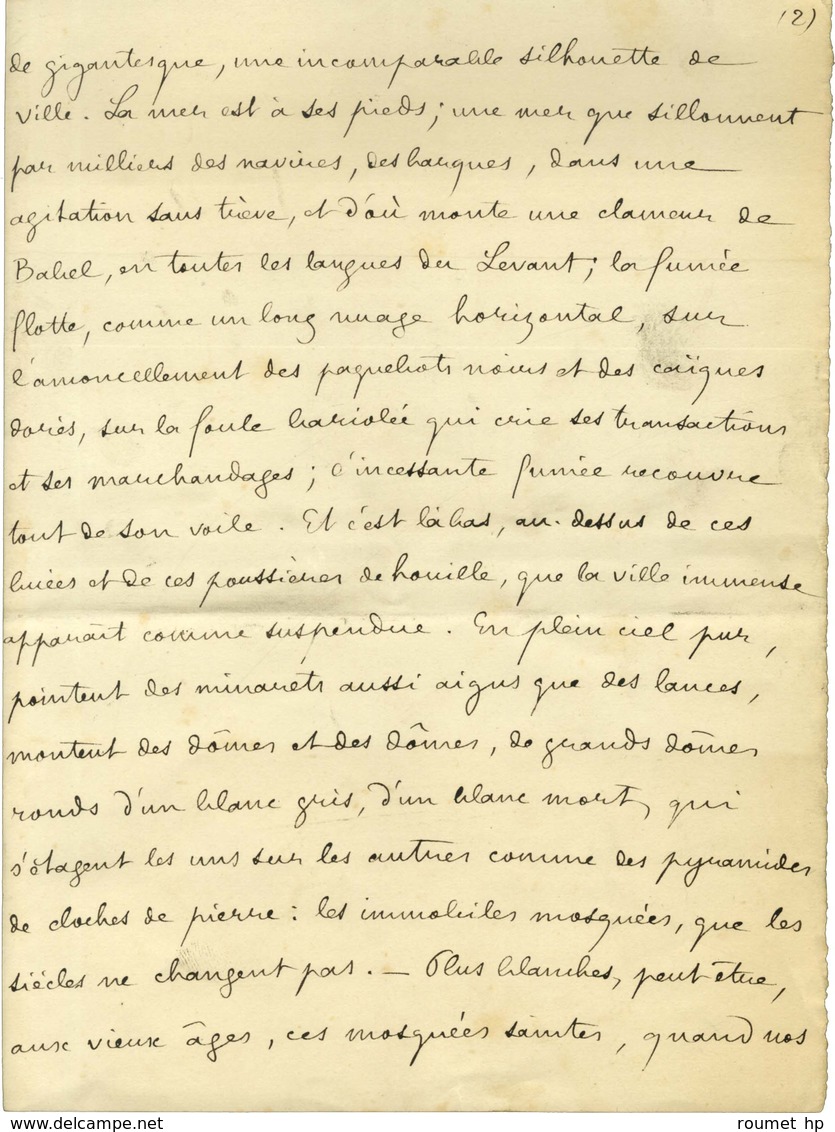 (2)
de gigantesque, une incomparable silhouette de
ville. La mer est à ses pieds; une mer que sillonnent
par milliers des navires, des barques, dans une
agitation sans trève, et d'où monte une clameur de
Babel, en toutes les langues du Levant; la fumée
flotte, comme un long nuage horizontal, sur
l'amoncellement des paquebots noirs et des caïques
dorés, sur la foule bariolée qui crie ses transactions
et ses marchandages; l'incessante fumée recouvre
tout de son voile. Et c'est là bas, au-dessus de ces
buées et de ces poussières de houille, que la ville immense
apparait comme suspendue. En plein ciel pur,
pointent des minarets aussi aigus que des lances,
montent des dômes et des dômes, de grands dômes
ronds d'un blanc gris, d'un blanc mort, qui
s'étagent les uns sur les autres comme des pyramides
de cloches de pierre: les immobiles mosquées, que les
siècles ne changent pas. — Plus blanches, peut-être,
aux vieux âges, ces mosquées saintes, quand nos
roumet hp
www.delcampe.net